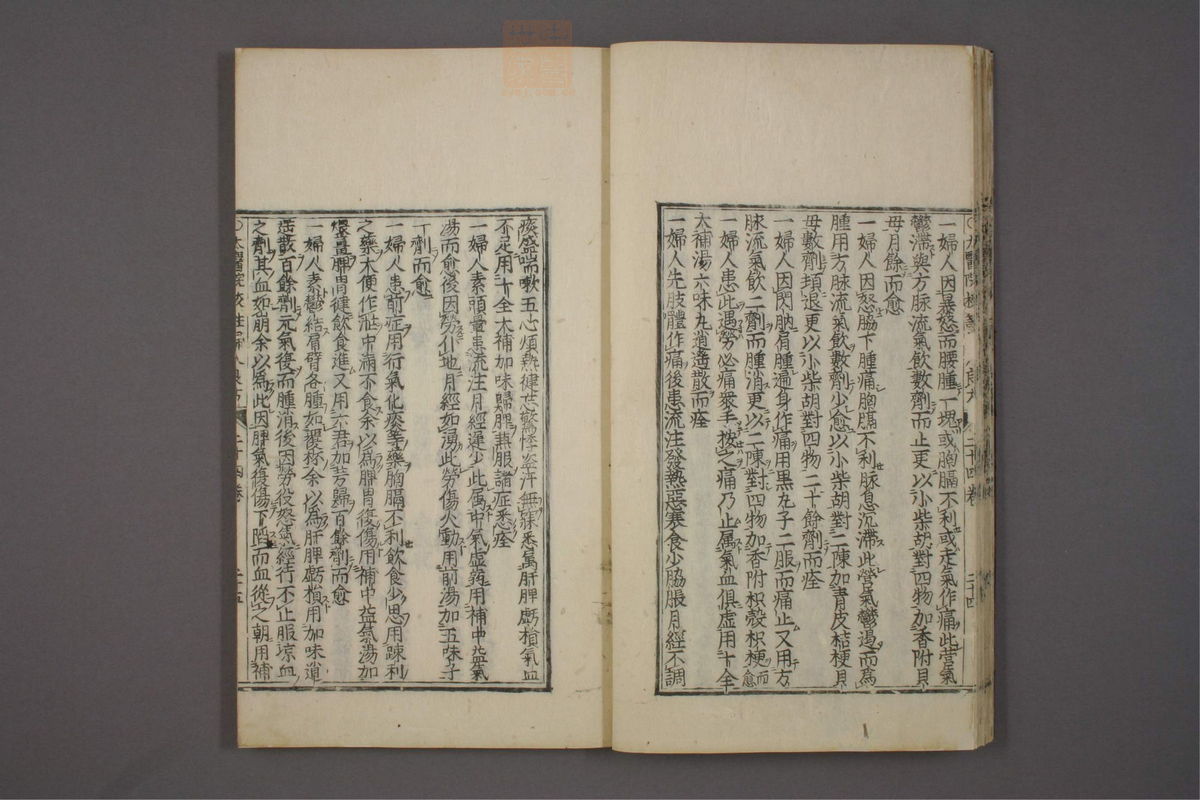 一婦人因暴怒而腰腫一塊或胸膈不利或走氣作痛此營氣
鬱滯與方脉流氣飲數劑而止更以小柴胡對四物加香附貝
母月餘而愈
一婦人因怒脇下腫痛胸膈不利脉息沉滯此營氣鬱遏而爲
腫用方脉流氣飲數劑少愈以小柴胡對二陳加青皮桔梗貝
母數劑頓退更以小柴胡對四物二十餘劑而痊
一婦人因閃肭肩腫遍身作痛用黒丸子二服而痛止又用方
脉流氣飲二劑而腫消更以二陳對四物加香附枳殼桔梗而愈
一婦人患此遇勞必痛衆手按之痛乃止属氣血俱虛用十全
大補湯六味丸逍遙散而痊
一婦人先肢體作痛後患流注發熱惡寒食少脇脹月經不調
二十四卷
二十四
痰盛喘嗽五心煩熱健忘驚悸盗汗無寐悉属肝脾虧損氣血
不足用十全大補加味歸脾兼服諸症悉痊
一婦人素頭暈患流注月經遲少此属中氣虛弱用補中益氣
湯而愈後因勞仆地月經如湧此勞傷火動用前湯加五味子
一劑而愈
一婦人患前症用行氣化痰等藥胸膈不利飲食少思用疎利
之藥大便作泄中滿不食余以爲脾胃復傷用補中益氣湯加
脾胃健飲食進又用六君加芎歸百餘劑而愈
一婦人素鬱結肩臂各腫如覆杯余以爲肝脾虧損用加味逍
遙散百餘劑元氣復而腫消後因勞役怒氣經行不止服凉血
之劑其血如崩余以爲此因脾氣復傷下陷而血從之朝用補
太醫院校註婦人良方
二十四卷
二十五